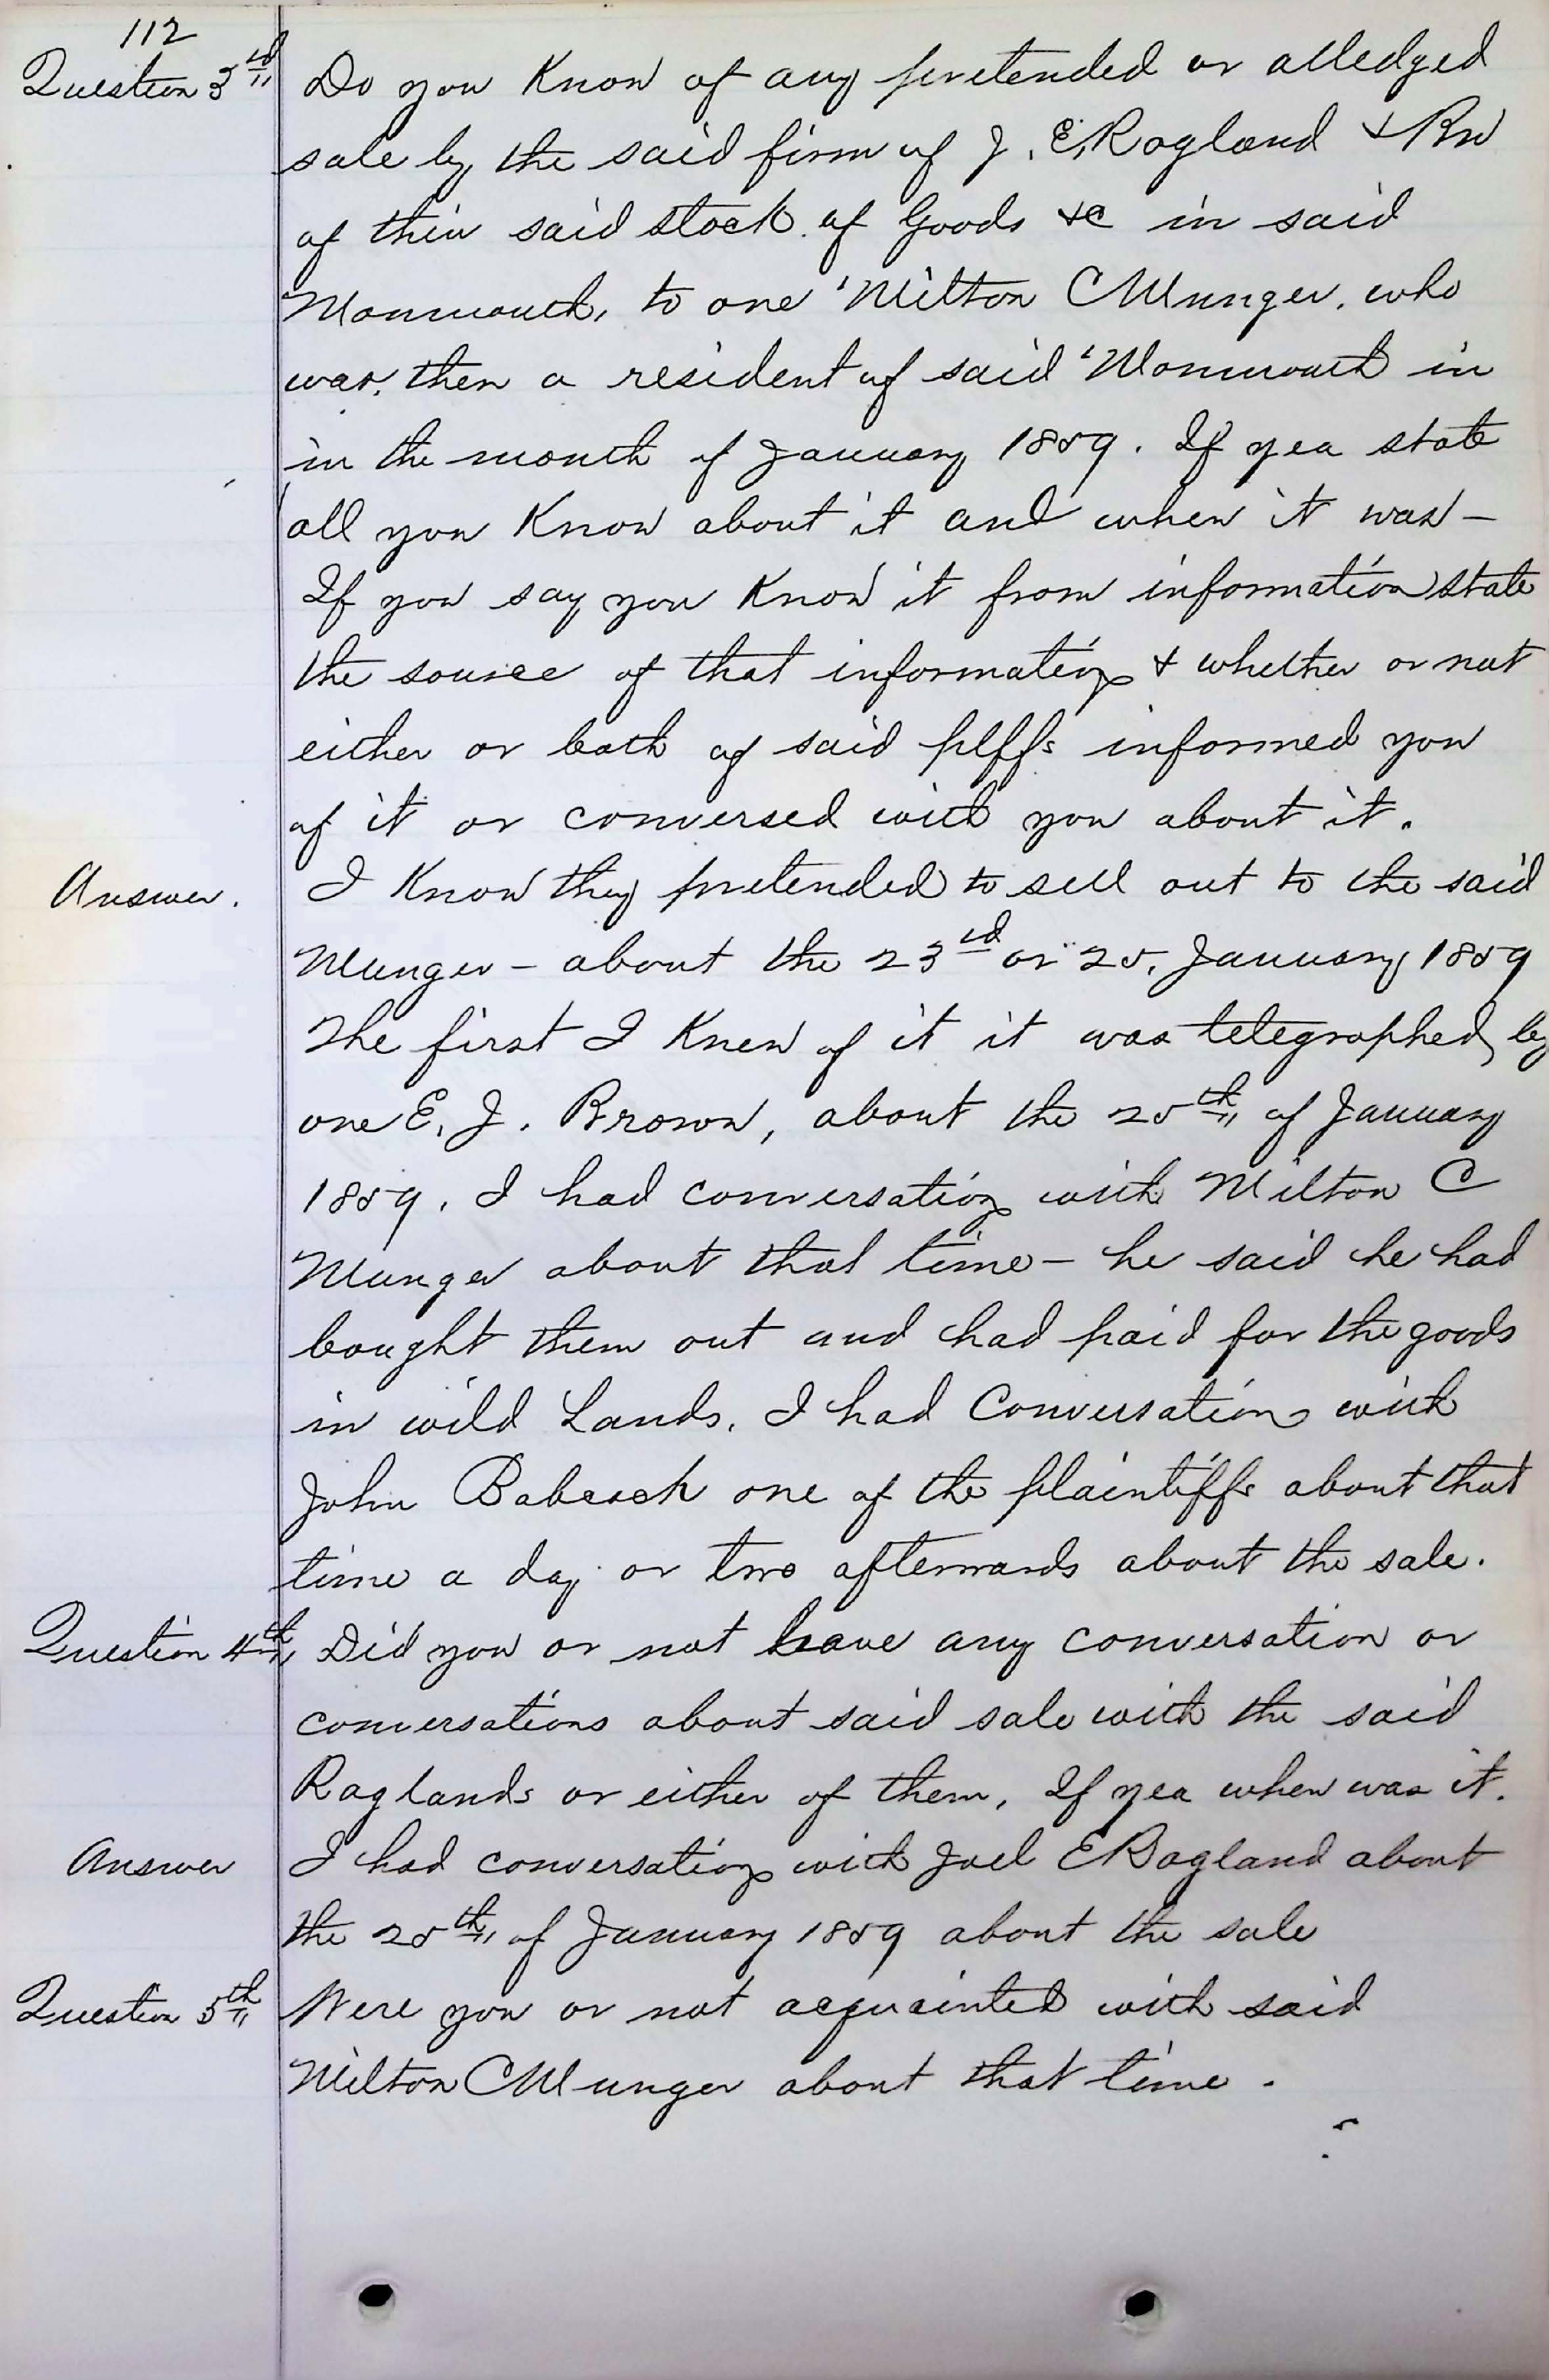 112
Question 3rd Do you Know of any pretended or alledged
sale by the said firm of J. E. Ragland & Bro
of their said stock of Goods &c in said
Monmouth, to one Milton C Munger. who
was, then a resident of said Monmouth in
in the month of January 1859. If yea state
all you Know about it and when it was –
If you say you Know it from information state
the source of that information & whether or not
either or both of said plffs informed you
of it or conversed with you about it.
Answer. I Know they pretended to sell out to the said
Munger – about the 23rd or 25. January 1859
The first I Knew of it it was telegraphed by
one E. J. Brown, about the 25th of January
1859. I had conversation with Milton C
Munger about that time – he said he had
bought them out and had paid for the goods
in wild Lands. I had Conversation with
John Babcock one of the plaintiffs about that
time a day or two afterwards about the sale.
Question 4th Did you or not have any conversation or
conversations about said sale with the said
Raglands or either of them, If yea when was it.
Answer I had conversation with Joel E Ragland about
the 25th of January 1859 about the sale
Question 5th Were you or not acquainted with said
Milton C Munger about that time.